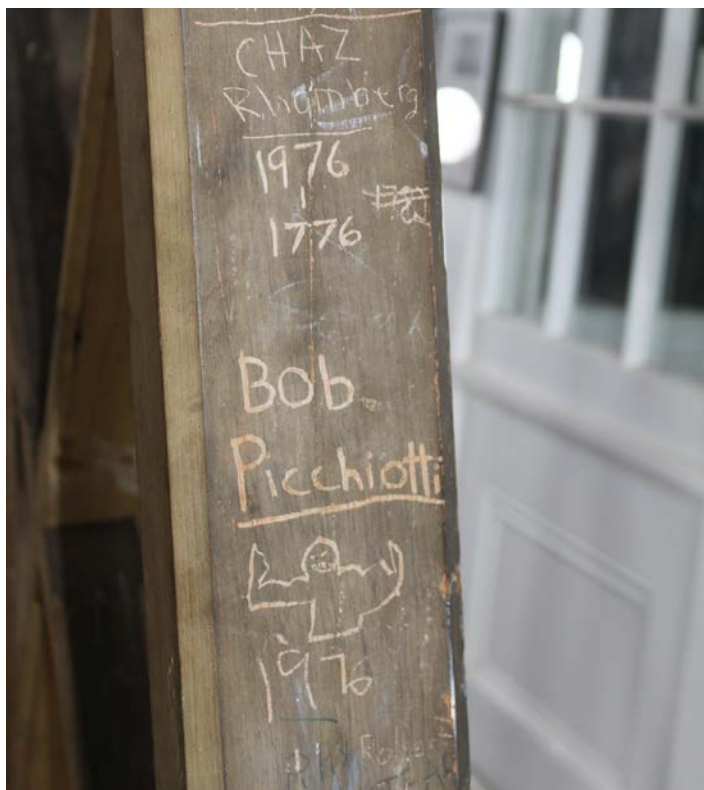 CHAZ
Rhomberg
1976
1776
Bob
Picchiotti
1976